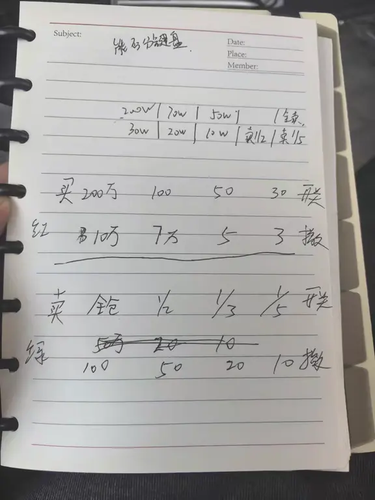 Subject:
Date:
Place:
Member:
200W | 70W | 50W | | 全卖
30W | 20W | 10W | 卖1/2 | 卖1/5
买 200万 100 50 30 开关
红 10万 7万 5 3 撤
卖 全仓 1/2 1/3 1/5 开关
绿 50万 20 10
100 50 20 10 撤